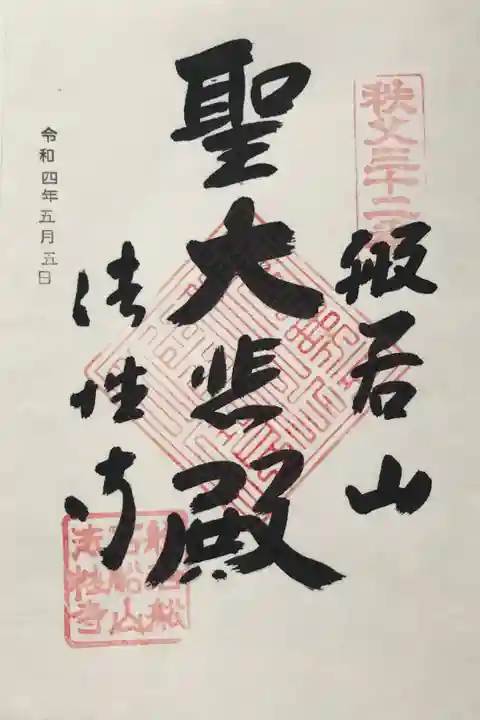 秩父三十二
般若山
聖大悲殿
法性寺
令和四年五月五日
法性寺